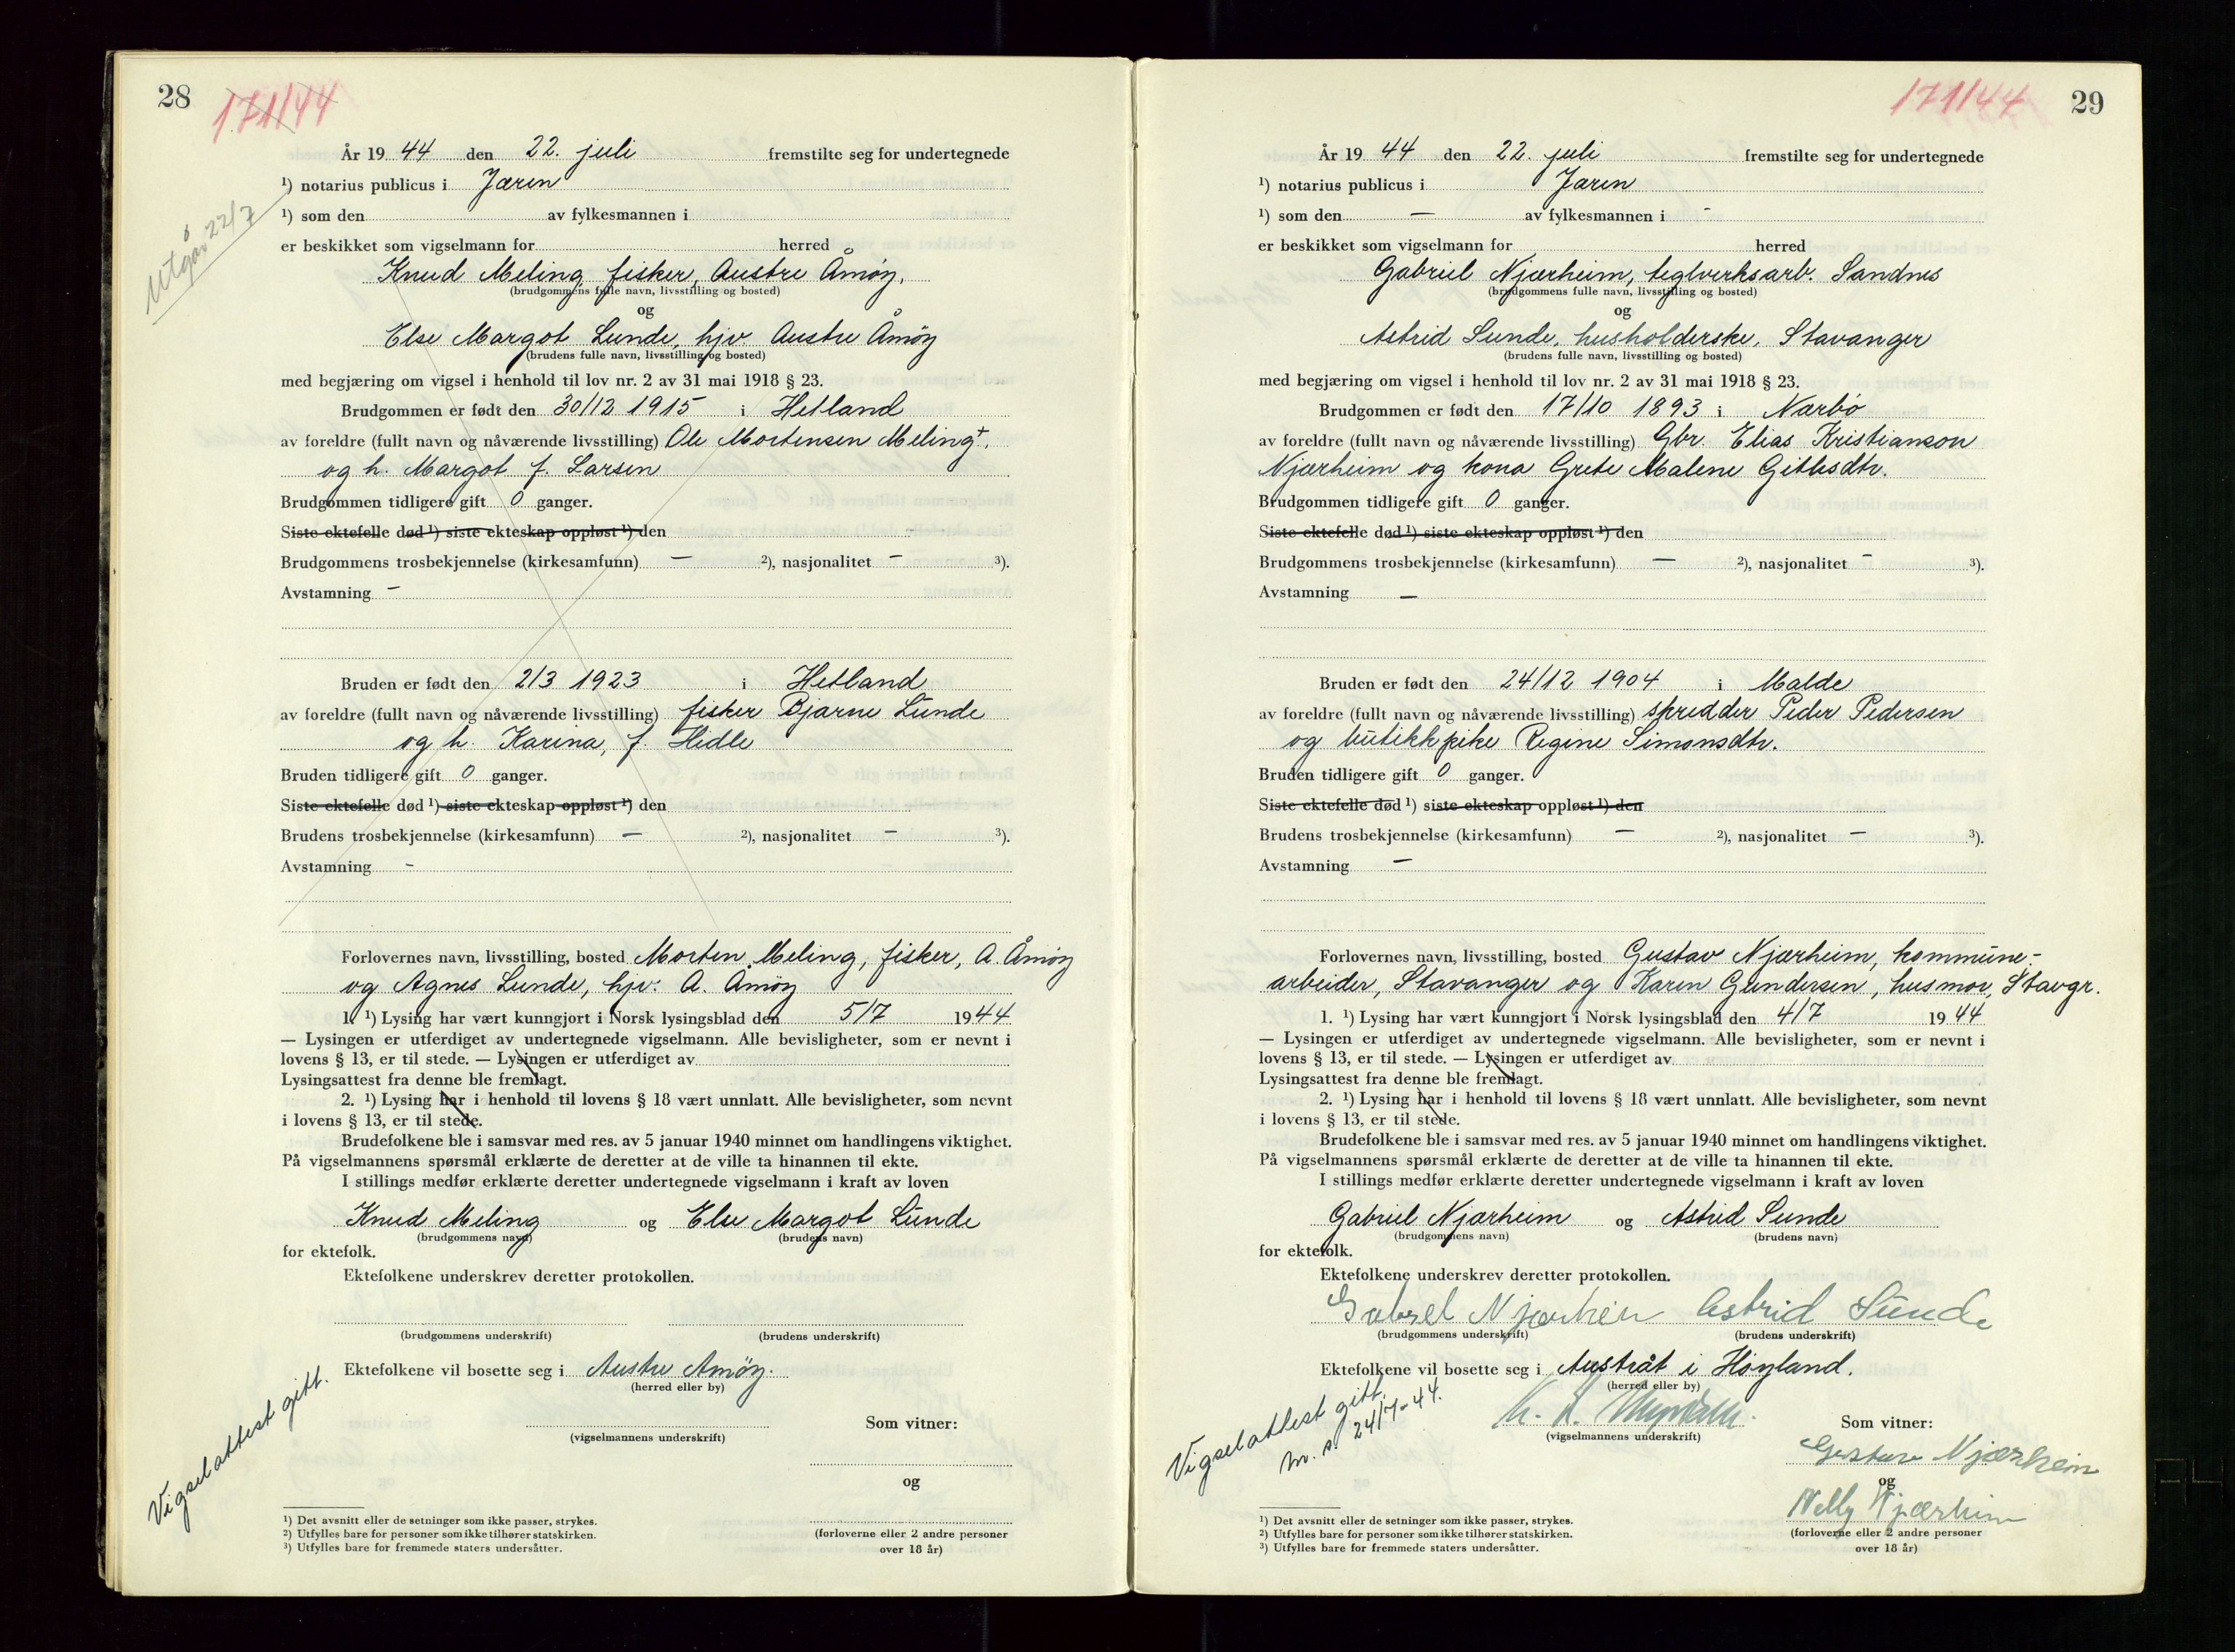 28
171/44
År 19 44 den 22. juli fremstilte seg for undertegnede
¹) notarius publicus i Jæren
¹) som den av fylkesmannen i
Utgår 22/7
er beskikket som vigselmann for herred
Knud Meling, fisker, Austre Åmøy,
(brudgommens fulle navn, livsstilling og bosted)
og
Else Margot Lunde, hjv. Austre Åmöy
(brudens fulle navn, livsstilling og bosted)
med begjæring om vigsel i henhold til lov nr. 2 av 31 mai 1918 § 23.
Brudgommen er født den 30/12 1915 i Hetland
av foreldre (fullt navn og nåværende livsstilling) Ole Mortensen Meling†,
og h. Margot f. Larsen
Brudgommen tidligere gift 0 ganger.
Siste ektefelle død ¹) siste ekteskap oppløst ¹) den
Brudgommens trosbekjennelse (kirkesamfunn) — ²), nasjonalitet — ³).
Avstamning –
Bruden er født den 2/3 1923 i Hetland
av foreldre (fullt navn og nåværende livsstilling) fisker Bjarne Lunde
og h. Karina, f. Hidle
Bruden tidligere gift 0 ganger.
Siste ektefelle død ¹) siste ekteskap oppløst ¹) den
Brudens trosbekjennelse (kirkesamfunn) — ²), nasjonalitet — ³).
Avstamning –
Forlovernes navn, livsstilling, bosted Morten Meling, fisker, A. Åmöy
og Agnes Lunde, hjv. A. Åmöy
1. ¹) Lysing har vært kunngjort i Norsk lysingsblad den 5/7 1944
— Lysingen er utferdiget av undertegnede vigselmann. Alle bevisligheter, som er nevnt i
lovens § 13, er til stede. — Lysingen er utferdiget av
Lysingsattest fra denne ble fremlagt.
2. ¹) Lysing har i henhold til lovens § 18 vært unnlatt. Alle bevisligheter, som nevnt
i lovens § 13, er til stede.
Brudefolkene ble i samsvar med res. av 5 januar 1940 minnet om handlingens viktighet.
På vigselmannens spørsmål erklærte de deretter at de ville ta hinannen til ekte.
I stillings medfør erklærte deretter undertegnede vigselmann i kraft av loven
Knud Meling og Else Margot Lunde
(brudgommens navn) (brudens navn)
for ektefolk.
Ektefolkene underskrev deretter protokollen.
(brudgommens underskrift) (brudens underskrift)
Ektefolkene vil bosette seg i Austre Amöy.
(herred eller by)
Vigselattest gitt.
Som vitner:
(vigselmannens underskrift)
og
¹) Det avsnitt eller de setninger som ikke passer, strykes.
²) Utfylles bare for personer som ikke tilhører statskirken.
³) Utfylles bare for fremmede staters undersåtter.
(forloverne eller 2 andre personer
over 18 år)
171/44
29
År 19 44 den 22. juli fremstilte seg for undertegnede
¹) notarius publicus i Jæren
¹) som den — av fylkesmannen i -
er beskikket som vigselmann for herred
Gabriel Njærheim, teglverksarb. Sandnes
(brudgommens fulle navn, livsstilling og bosted)
og
Astrid Sunde, husholderske, Stavanger
(brudens fulle navn, livsstilling og bosted)
med begjæring om vigsel i henhold til lov nr. 2 av 31 mai 1918 § 23.
Brudgommen er født den 17/10 1893 i Nærbö
av foreldre (fullt navn og nåværende livsstilling) Gbr. Elias Kristianson
Njærheim og kona Grete Malene Gitlesdtr.
Brudgommen tidligere gift 0 ganger.
Siste ektefelle død ¹) siste ekteskap oppløst ¹) den
Brudgommens trosbekjennelse (kirkesamfunn) — ²), nasjonalitet – ³).
Avstamning —
Bruden er født den 24/12 1904 i Malde
av foreldre (fullt navn og nåværende livsstilling) skredder Peder Pedersen
og butikkpike Regine Simonsdtr.
Bruden tidligere gift 0 ganger.
Siste ektefelle død ¹) siste ekteskap oppløst ¹) den
Brudens trosbekjennelse (kirkesamfunn) — ²), nasjonalitet — ³).
Avstamning —
Forlovernes navn, livsstilling, bosted Gustav Njærheim, kommune-
arbeider, Stavanger og Karen Gundersen, husmor, Stavgr.
1. ¹) Lysing har vært kunngjort i Norsk lysingsblad den 4/7 1944
— Lysingen er utferdiget av undertegnede vigselmann. Alle bevisligheter, som er nevnt i
lovens § 13, er til stede. — Lysingen er utferdiget av
Lysingsattest fra denne ble fremlagt.
2. ¹) Lysing har i henhold til lovens § 18 vært unnlatt. Alle bevisligheter, som nevnt
i lovens § 13, er til stede.
Brudefolkene ble i samsvar med res. av 5 januar 1940 minnet om handlingens viktighet.
På vigselmannens spørsmål erklærte de deretter at de ville ta hinannen til ekte.
I stillings medfør erklærte deretter undertegnede vigselmann i kraft av loven
Gabriel Njærheim og Astrid Sunde
(brudgommens navn) (brudens navn)
for ektefolk.
Ektefolkene underskrev deretter protokollen.
Gabrel Njærheim Astrid Sunde
(brudgommens underskrift) (brudens underskrift)
Ektefolkene vil bosette seg i Austråt i Höyland.
(herred eller by)
Vigselattest gitt.
24/7-44.
Som vitner:
(vigselmannens underskrift)
Gustav Njærheim
og
Nelly Njærheim
¹) Det avsnitt eller de setninger som ikke passer, strykes.
²) Utfylles bare for personer som ikke tilhører statskirken.
³) Utfylles bare for fremmede staters undersåtter.
(forloverne eller 2 andre personer
over 18 år)